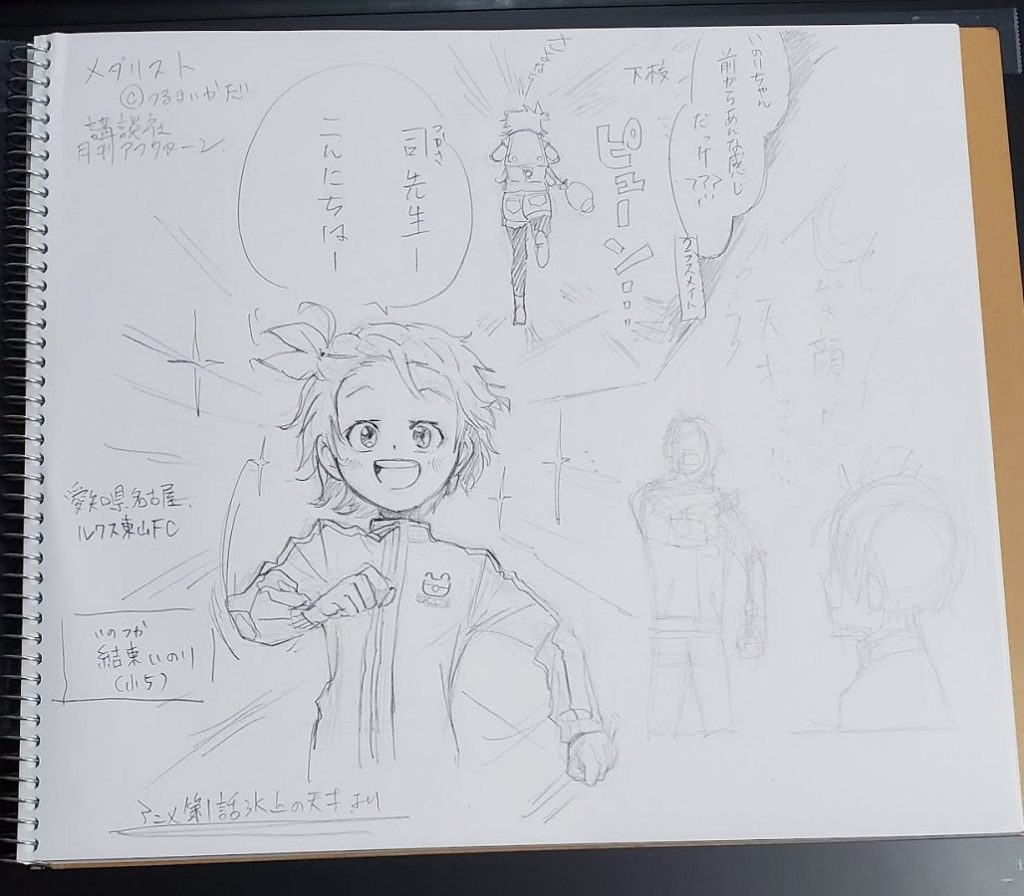 メダリスト
©つるまいかだ
講談社
月刊アフタヌーン
司先生ー
つかさ
こんにちはー
さよならー
下校
ピューン...
いのりちゃん
前からあんな感じ
だっけ???
クラスメイト
笑顔が
天才
愛知県名古屋
ルクス東山FC
いのつか
結束いのり
(小5)
アニメ第1話氷上の天才より